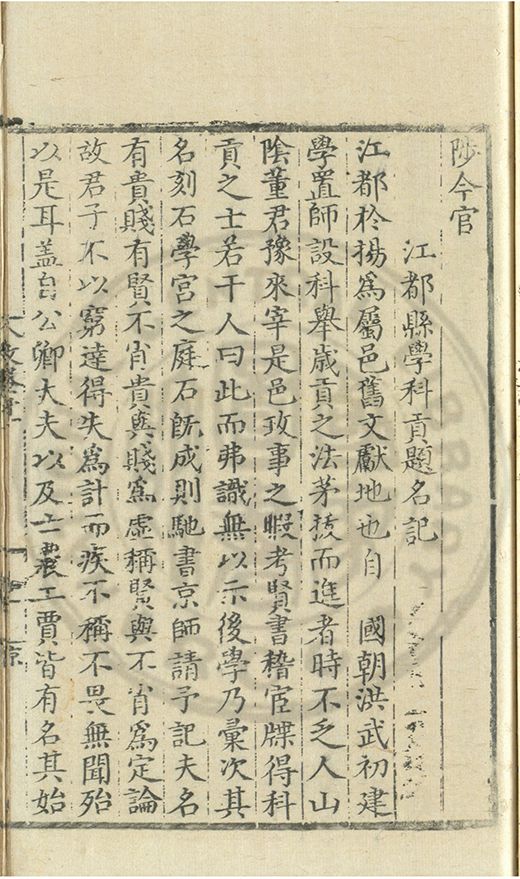 陟今官
江都縣學科貢題名記
江都於揚爲屬邑舊文獻地也自　國朝洪武初建
學置師設科舉歲貢之法茅拔而進者時不乏人山
陰董君豫來宰是邑政事之暇考賢書稽宦牒得科
貢之士若干人曰此而弗識無以示後學乃彙次其
名刻石學宮之庭石旣成則馳書京師請予記夫名
有貴賤有賢不肖貴與賤爲虛稱賢與不肖爲定論
故君子不以窮達得失爲計而疾不稱不畏無聞殆
以是耳蓋自公卿大夫以及士農工賈皆有名其始